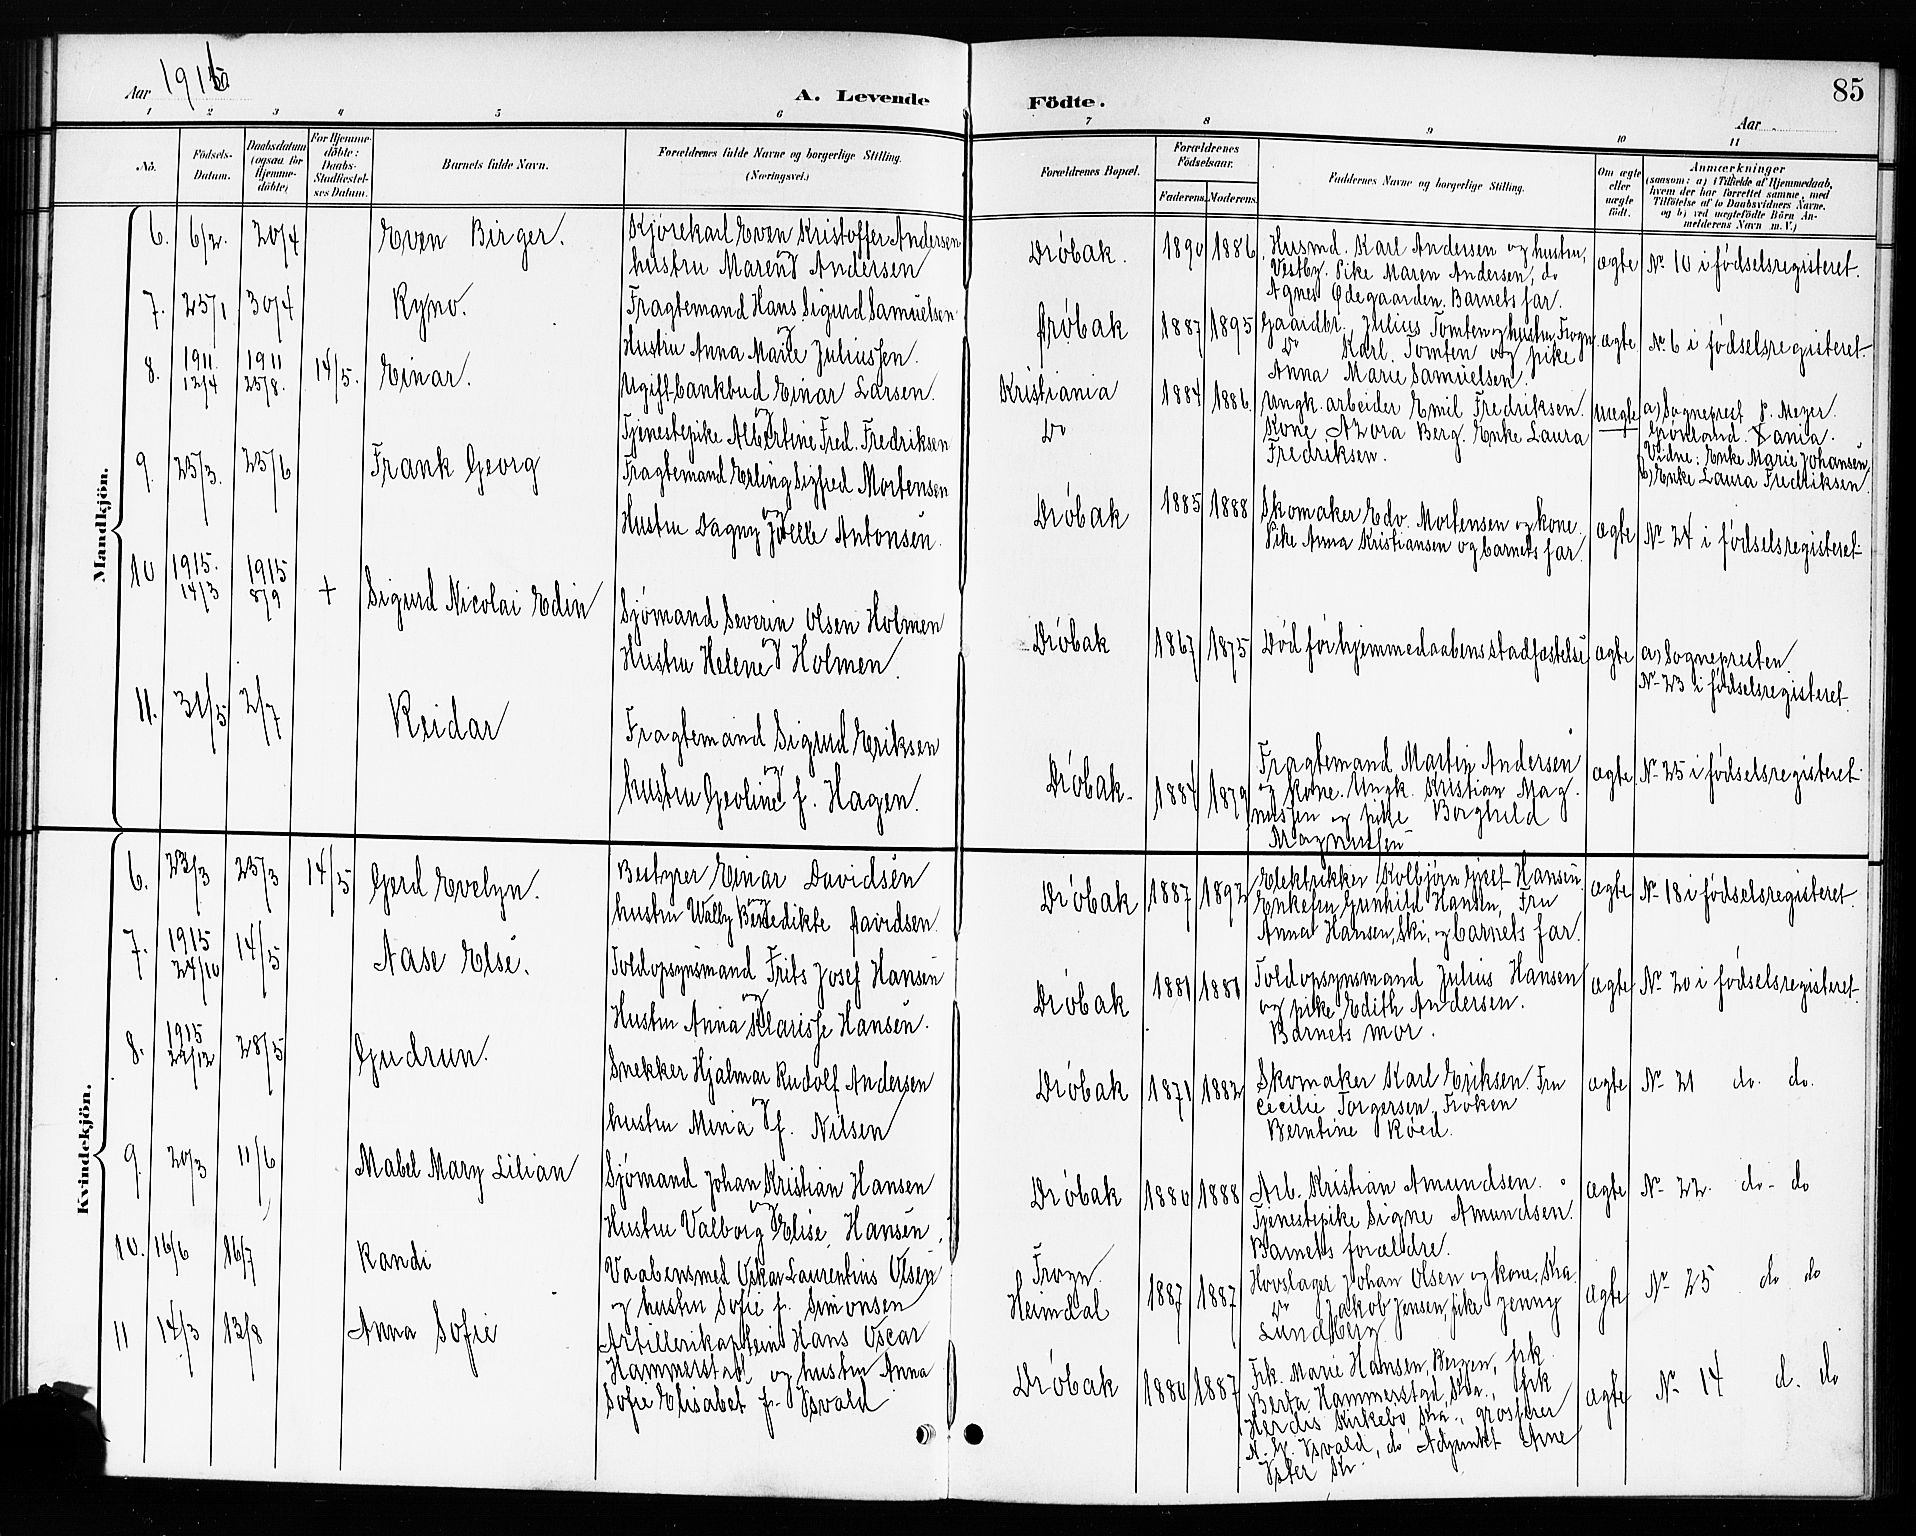 Aar 1916
A. Levende
Födte.
85
Aar
1 2 3 4 5 6 7 8 9 10 11
No.
Födsels-Datum.
Daabsdatum (ogsaa for Hjemme-döbte)
For Hjemme-döbte: Daabs-Stadfæstel-ses Datum.
Barnets fulde Navn.
Forældrenes fulde Navne og borgerlige Stilling. (Næringsvei.)
Forældrenes Bopæl.
Forældrenes Födselsaar.
Faderens. Moderens.
Faddernes Navne og borgerlige Stilling.
Om ægte eller uægte födt.
Anmærkninger
(saasom: a) i Tilfælde af Hjemmedaab,
hvem der har forrettet samme, med
Tilföielse af to Daabsvidners Navne.
og b) ved uægtefödte Börn An-
melderens Navn m. V.)
Mandkjön.
6. 6/2. 20/4 Even Birger.
Kjörekarl Even Kristoffer Andersen
og
hustru Maren Andersen
Dröbak. 1890 1886
Husmd. Karl Andersen og hustru,
Vestby. Pike Maren Andersen, do
Agnes Ødegaarden. Barnets far.
ægte No 10 i fødselsregisteret.
7. 25/1 30/4 Kyno.
Fragtemand Hans Sigurd Samuelsen
og
Hustru Anna Marie Juliussen.
Drøbak 1887 1895
Gaardbr. Julius Tomten og hustru, Frogn
Do Karl Tomten og pike
Anna Marie Samuelsen.
ægte No 6 i fødselsregisteret.
8. 1911 12/4 1911 25/8. 14/5. Einar.
Ugift bankbud Einar Larsen.
og
Tjenestepike Albertine Fred. Fredriksen
Kristiania
Do
1884 1886.
Ungk. arbeider Emil Fredriksen.
Kone Azora Berg. Enke Laura
Fredriksen.
uægte
a) Sogneprest P. Meyer.
Grønland. Xania.
Vidne: Enke Marie Johansen
b) Enke Laura Fredriksen
9. 25/3. 25/6 Frank Georg
Fragtemand Erling Sigfred Mortensen
og
Hustru Dagny Joelle Antonsen.
Dröbak 1885 1888
Skomaker Edv. Mortensen og kone.
Pike Anna Kristiansen og barnets far.
ægte No 24 i fødselsregisteret
10 1915. 14/3 1915 8/9 + Sigurd Nicolai Edin
Sjömand Severin Olsen Holmen
og
Hustru Helene Holmen.
Dröbak 1867 1875
Död för hjemmedaabens stadfæstelse
ægte a) Sognepresten.
No 23 i fødselsregisteret
11. 31/5 2/7 Reidar
Fragtemand Sigurd Eriksen
og
hustru Geoline f. Hagen.
Dröbak. 1884 1879
Fragtemand Martin Andersen
og kone. Ungk. Kristian Mag-
nussen og pike Borghild
Magnussen
ægte. No 25 i fødselsregisteret
Kvindekjön.
6. 23/3 25/3 14/5 Gerd Evelyn.
Bestyrer Einar Davidsen
og
hustru Wally Benedikte Davidsen.
Dröbak 1887 1892
Elektrikker Kolbjørn Hansen
Enkefru Gunhild Hansen, Fru
Anna Hansen, Ski, og barnets far.
ægte No 18 i fødselsregisteret.
7. 1915 24/10 14/5 Aase Else.
Toldopsynsmand Frits Josef Hansen
og
Hustru Anna Klarisse Hansen.
Dröbak 1881 1881
Toldopsynsmand Julius Hansen
og pike Edith Andersen.
Barnets mor.
ægte No 20 i fødselsregisteret.
8. 1915 22/12 28/5 Gudrun.
Snekker Hjalmar Rudolf Andersen
og
hustru Mina f. Nilsen
Dröbak 1871 1882
Skomaker Karl Eriksen. Fru
Cecilie Torgersen. Fröken
Berntine Røed.
ægte No 21 do. do.
9. 20/3 11/6 Mabel Mary Lilian
Sjömand Johan Kristian Hansen
og
Hustru Valborg Elise Hansen.
Dröbak 1880 1888
Arb. Kristian Amundsen.
Tjenestepike Signe Amundsen.
Barnets forældre.
ægte No 22. do. do
10. 16/6 16/7 Randi
Vaabensmed Oskar Laurentius Olsen
og hustru Sofie f. Simonsen
Frogn.
Heimdal 1887 1887
Hovslager Johan Olsen og kone, Kra.
Do Jakob Jensen, pike Jenny
Lundberg.
ægte No 25 do do
11 14/3 13/8 Anna Sofie
Artillerikaptein Hans Oscar
Hammerstad og hustru Anna
Sofie Elisabet f. Osvald
Dröbak 1880 1887
Frk. Marie Hansen, Bergen, frk
Berta Hammerstad, Kra., frk
Herdis Kirkebø Kra., grosserer
N. G. Osvald, do Adjunkt Arne
Oster Kr.
ægte No 14 d. do